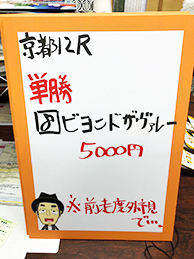 京都12R
単勝
図ビヨンドザヴァレー
5000円
※前走度外視
で…